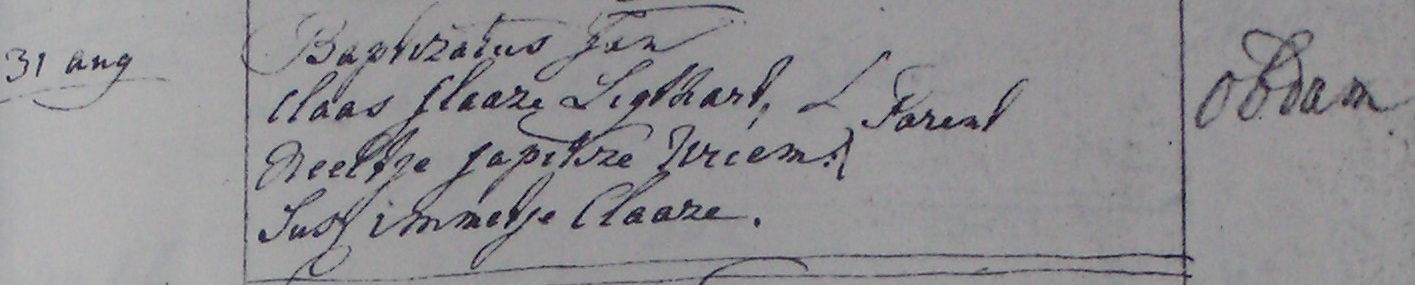 31 aug
Baptizatus Jan
Claas Claaze Ligthart, Parent
Neeltje Japikze Vriem.
Sus. immetje Claaze.
obdam